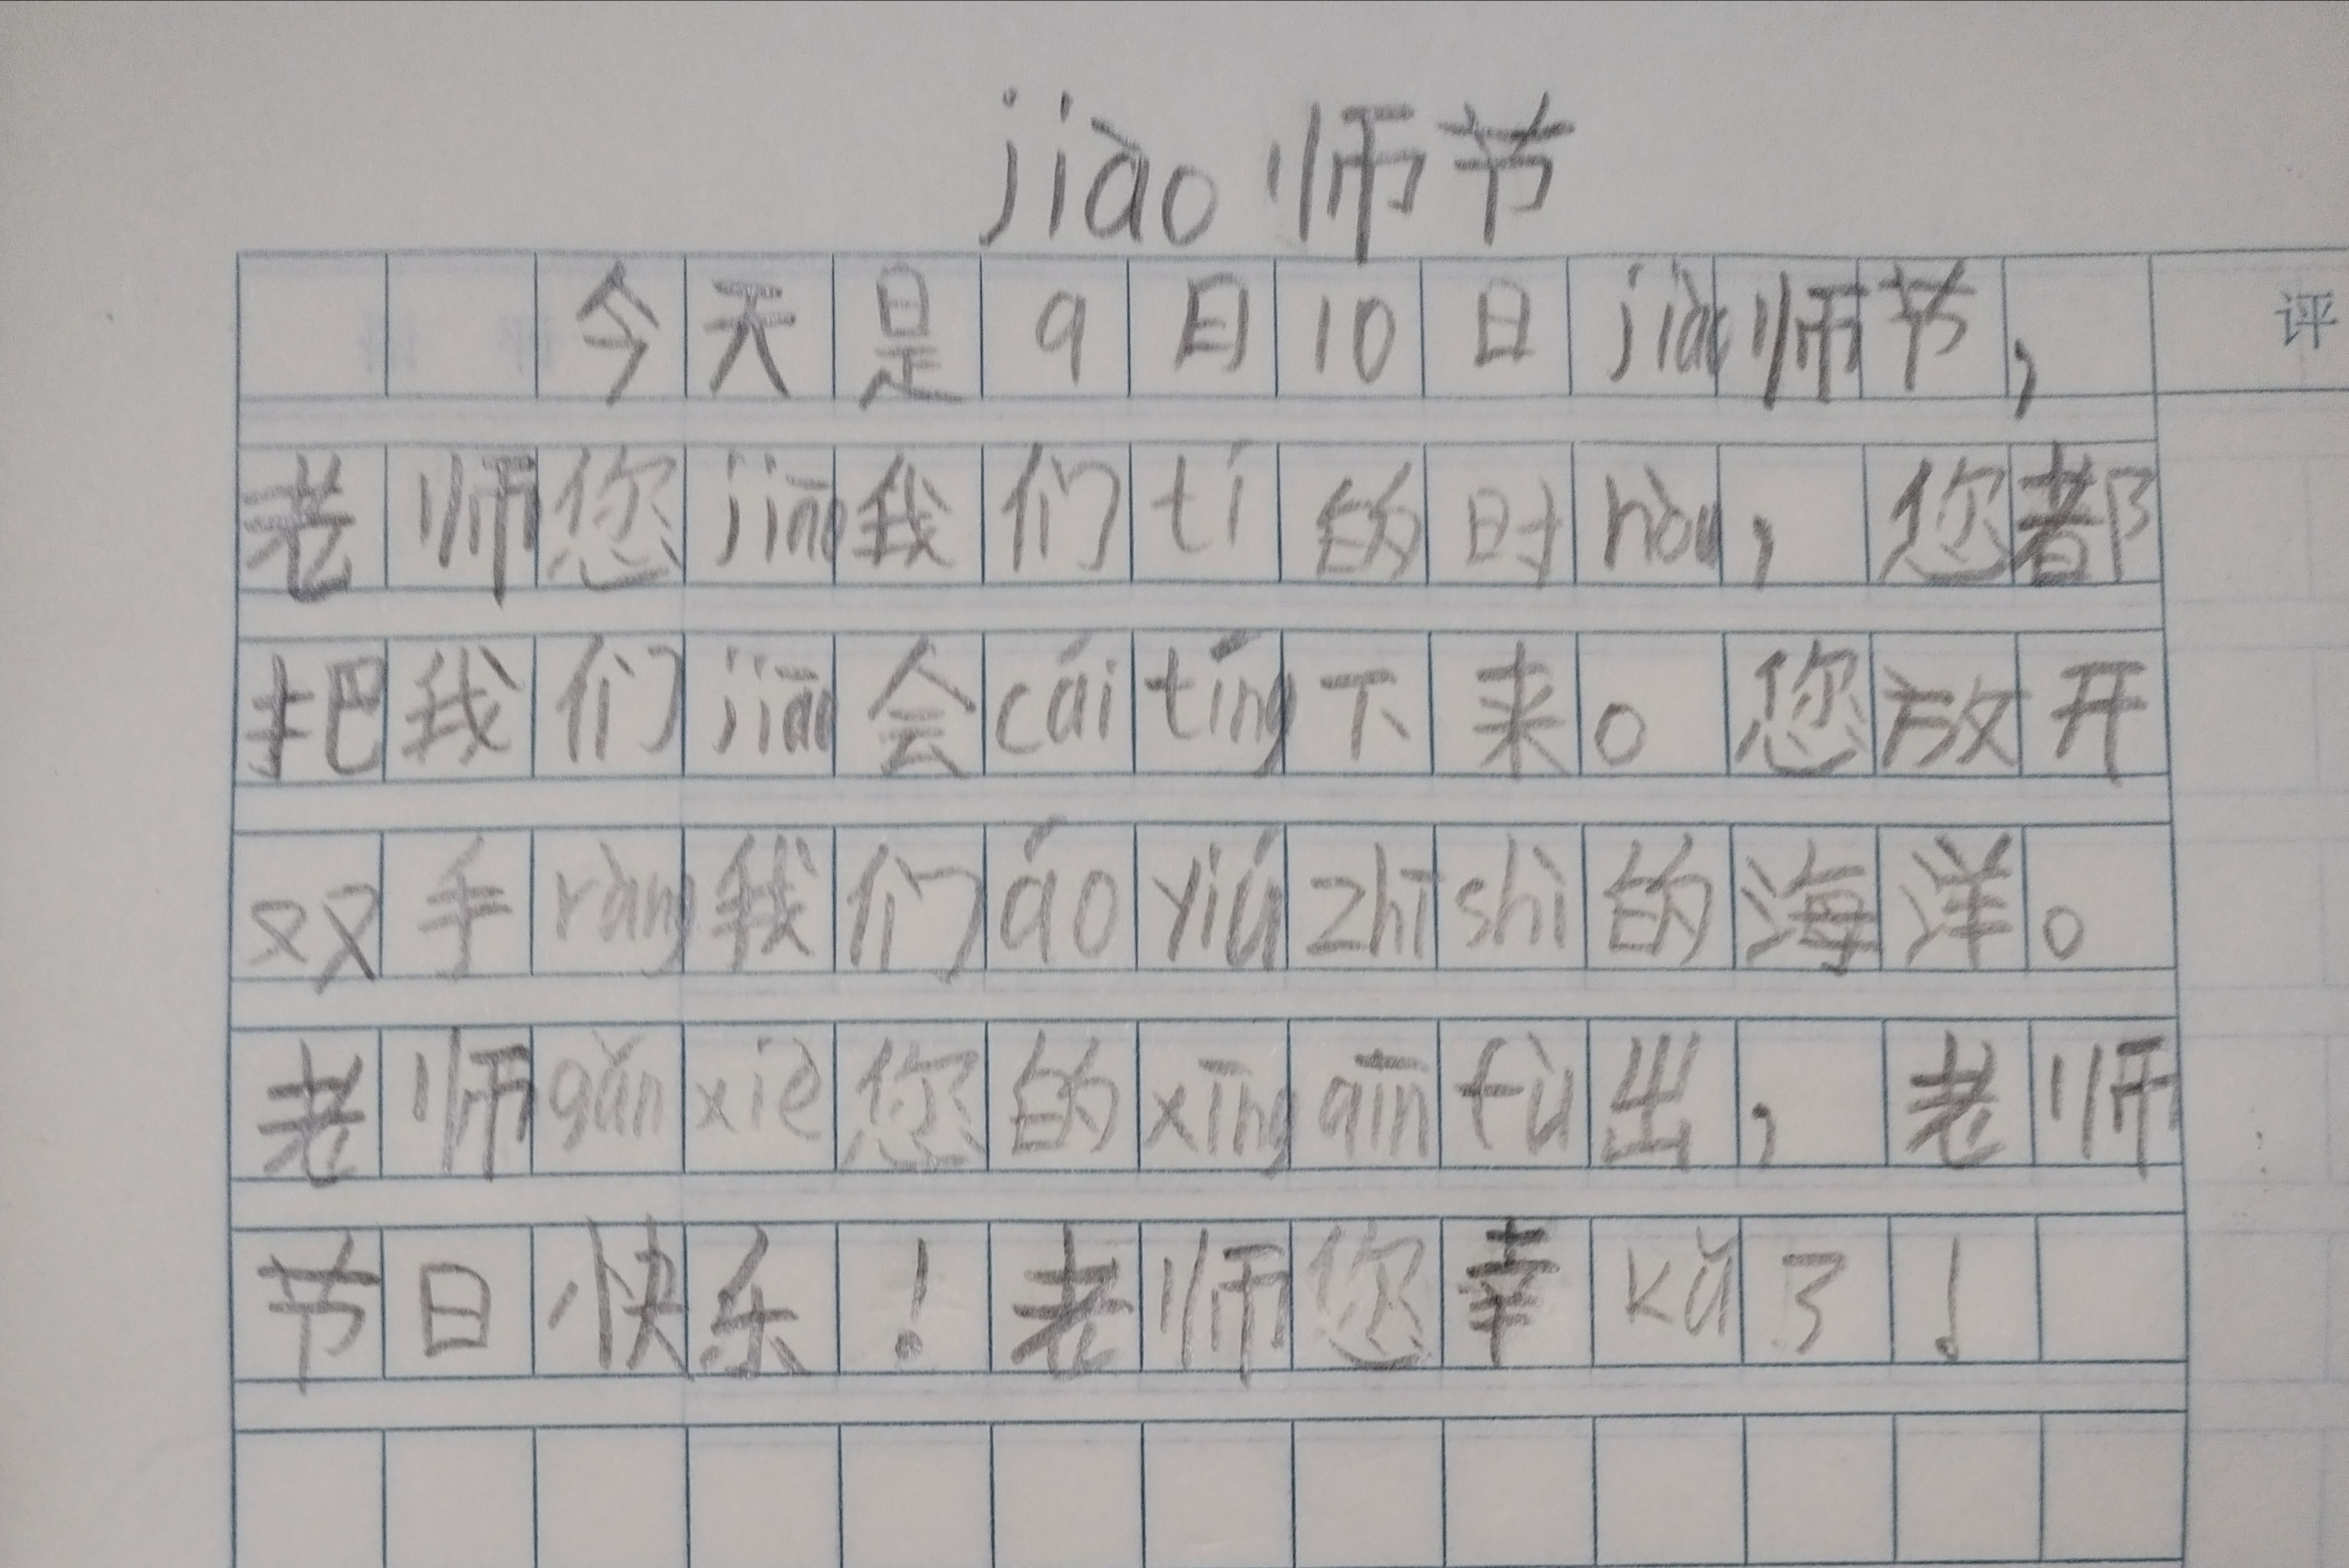 jiào师节
今天是9月10日jiào师节，
评
老师您jiāo我们tí的时hòu，您都
把我们jiāo会cái tíng下来。您放开
双手ràng我们áo yiú zhī shi的海洋。
老师gǎn xiè您的xīng qīn fù出，老师
节日快乐！老师您幸kǔ了！